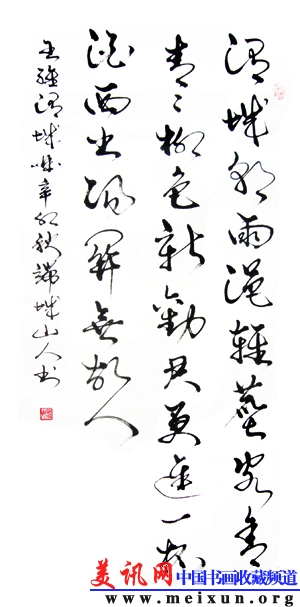 渭城朝雨浥輕塵客舍
青〻柳色新勸君更進一杯
酒西出陽關無故人
王維渭城曲辛卯秋端城山人书
美讯网中国书画收藏频道
www.meixun.org